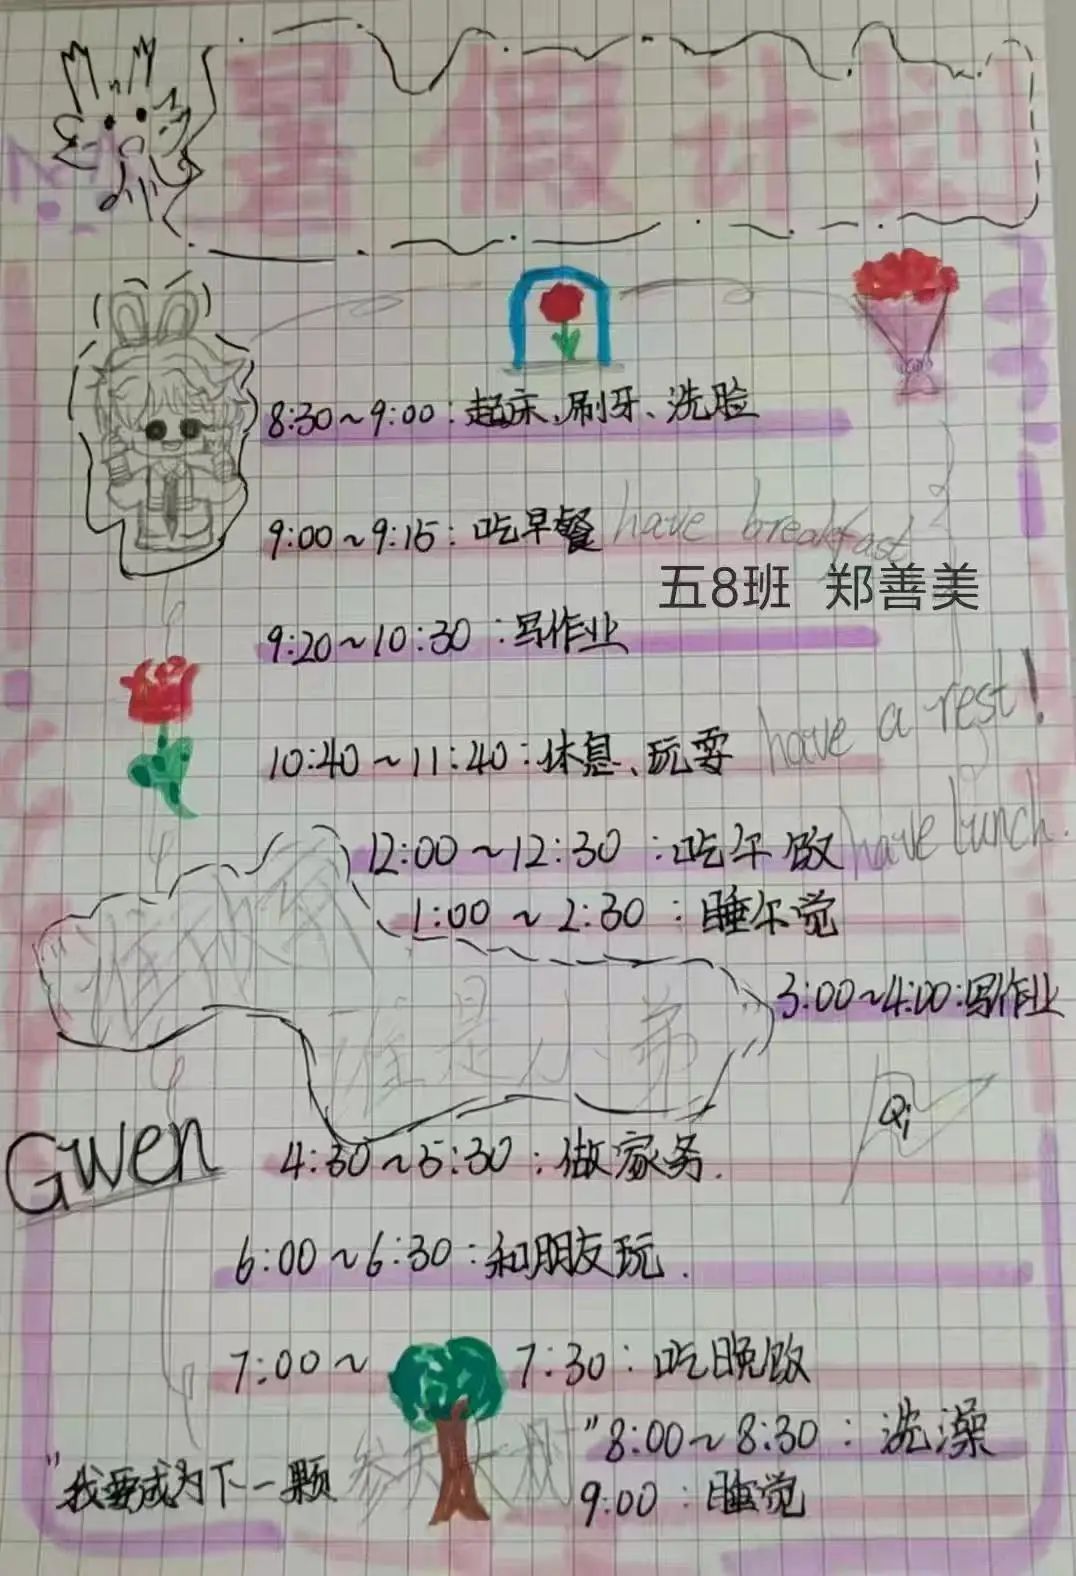 暑假计划
8:30~9:00:起床、刷牙、洗脸
9:00~9:15:吃早餐 have breakfast
五8班 郑善美
9:20~10:30:写作业
10:40~11:40:休息、玩耍 have a rest!
12:00~12:30:吃午饭 have lunch.
1:00~2:30:睡午觉
3:00~4:00:写作业
谁是小弟
Qi
Gwen
4:30~5:30:做家务.
6:00~6:30:和朋友玩.
7:00~7:30:吃晚饭
"8:00~8:30:洗澡
"我要成为下一颗 参天大树
9:00:睡觉